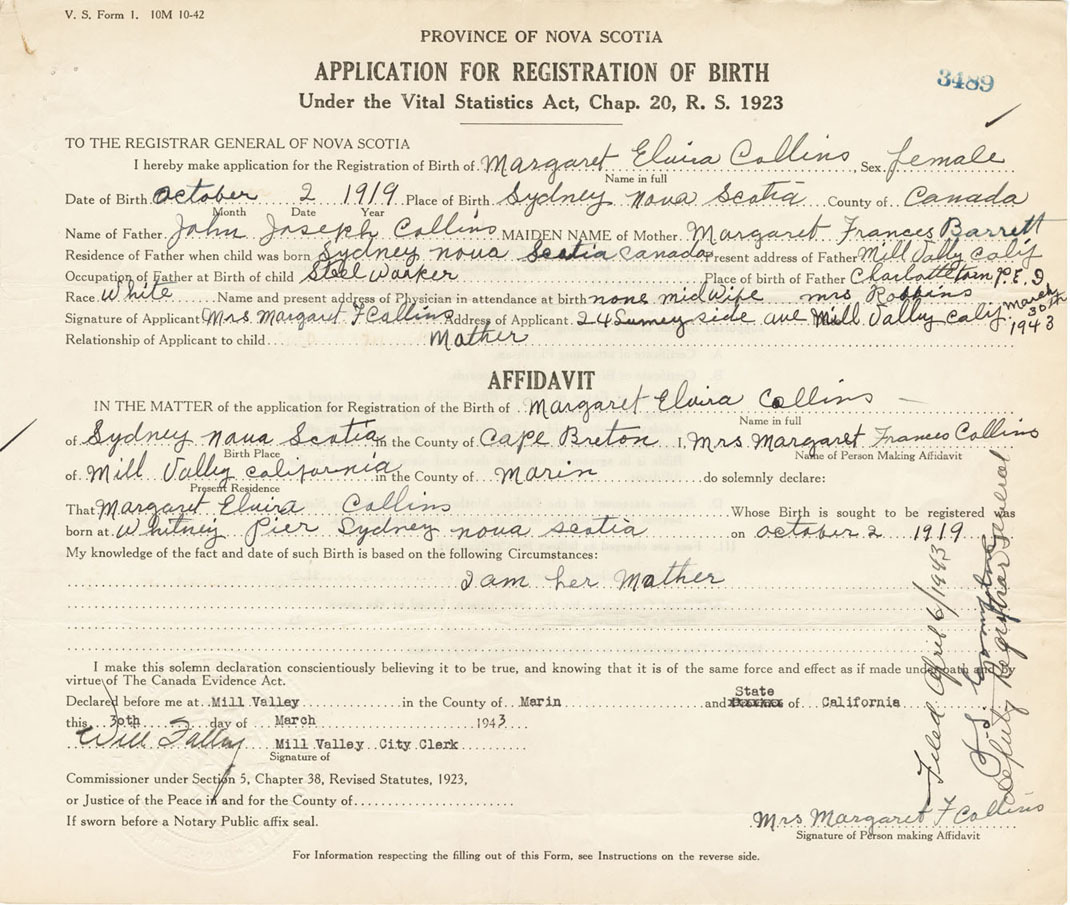 V. S. Form 1. 10M 10-42
PROVINCE OF NOVA SCOTIA
APPLICATION FOR REGISTRATION OF BIRTH
3489
Under the Vital Statistics Act, Chap. 20, R. S. 1923
TO THE REGISTRAR GENERAL OF NOVA SCOTIA
I hereby make application for the Registration of Birth of Margaret Elvira Collins, Sex female
Name in full
Date of Birth October 2 1919 Place of Birth Sydney nova Scotia County of Canada
Month Date Year
Name of Father John Joseph Collins MAIDEN NAME of Mother Margaret Frances Barrett
Residence of Father when child was born Sydney nova Scotia Canada Present address of Father Mill Vally Calif
Occupation of Father at Birth of child Steel Worker Place of birth of Father Charlottetown P.E.I
Race White Name and present address of Physician in attendance at birth none midwife mrs Robbins
Signature of Applicant Mrs Margaret F Collins Address of Applicant 24 Sumey side ave Mill Vally Calif. March 30th 1943
Relationship of Applicant to child Mother
AFFIDAVIT
IN THE MATTER of the application for Registration of the Birth of Margaret Elvira Collins
Name in full
of Sydney nova Scotia in the County of Cape Breton I, Mrs Margaret Frances Collins
Birth Place Name of Person Making Affidavit
of Mill Vally California in the County of Marin do solemnly declare:
Present Residence
That Margaret Elvira Collins Whose Birth is sought to be registered was
born at Whitney Pier Sydney nova scotia on october 2 1919
My knowledge of the fact and date of such Birth is based on the following Circumstances:
I am her Mother
I make this solemn declaration conscientiously believing it to be true, and knowing that it is of the same force and effect as if made under oath and by
virtue of The Canada Evidence Act.
State
Declared before me at Mill Valley in the County of Marin and of California
this 30th day of March 1943
Will Falley Mill Valley City Clerk
Signature of
Commissioner under Section 5, Chapter 38, Revised Statutes, 1923,
or Justice of the Peace in and for the County of
If sworn before a Notary Public affix seal.
Mrs Margaret F Collins
Signature of Person making Affidavit
For Information respecting the filling out of this Form, see Instructions on the reverse side.
Filed April 6/1943
Deputy Registrar General